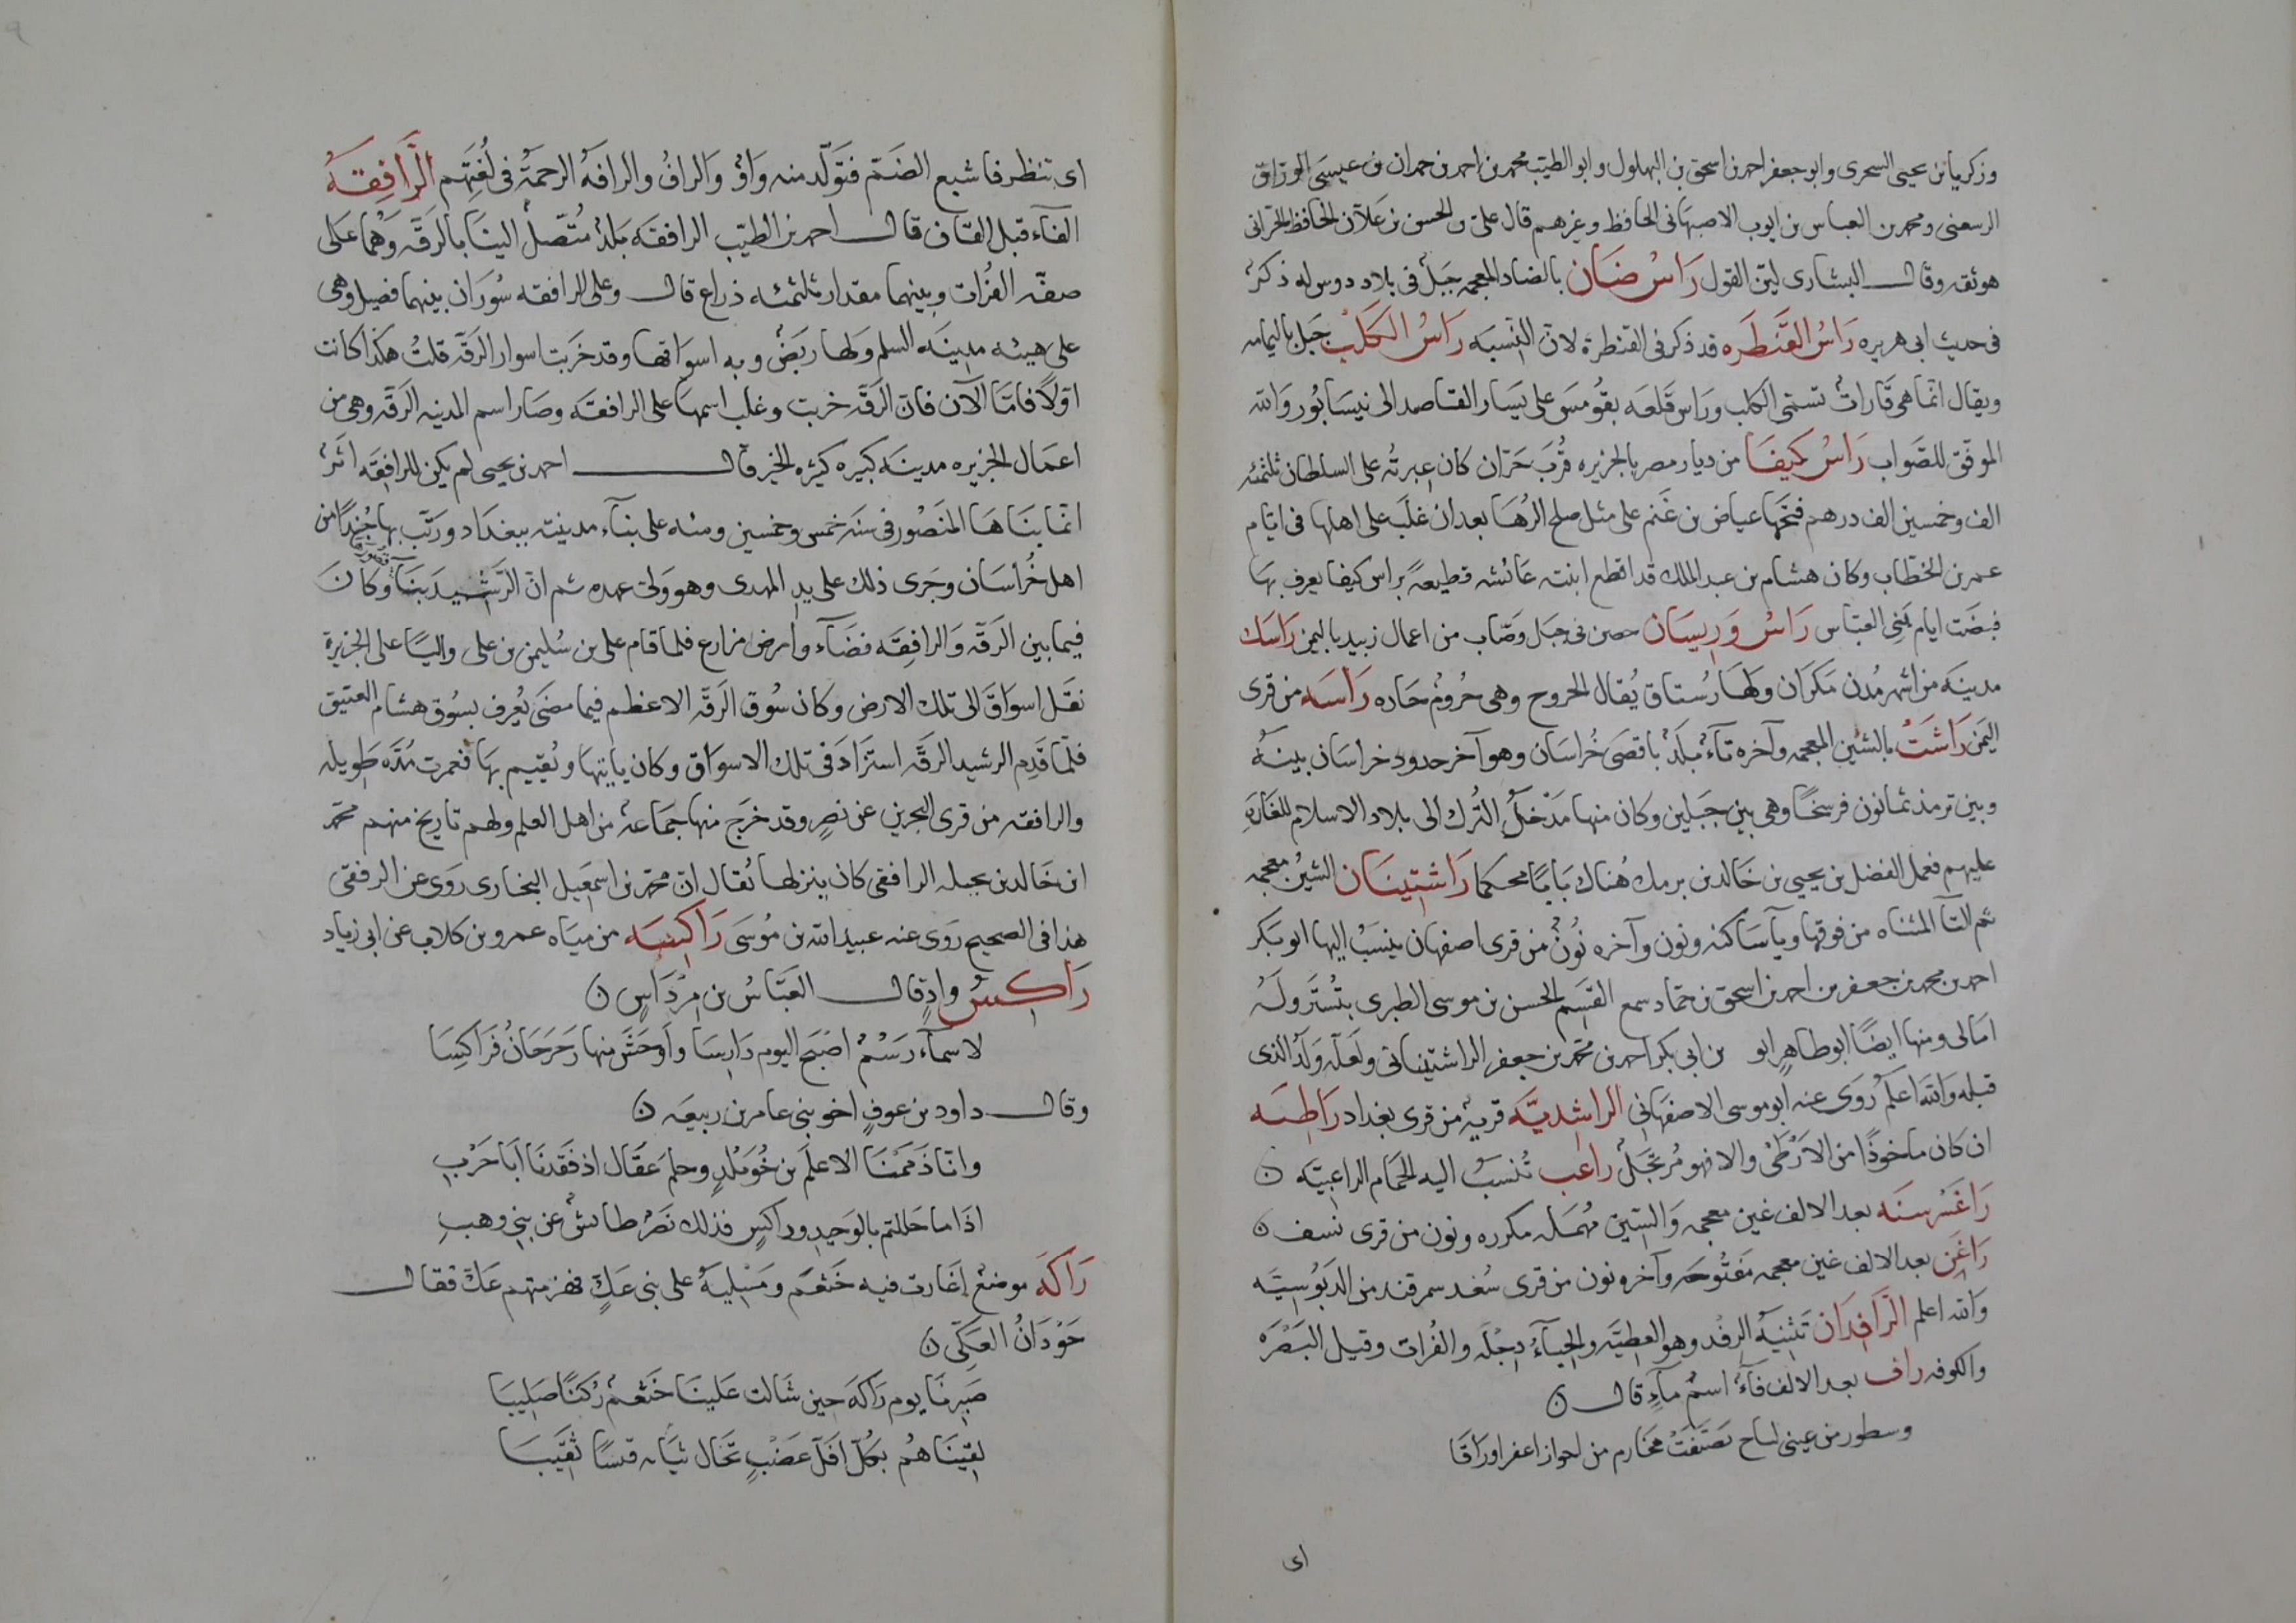 وزكريا بن يحيى السحرى وابو جعفر احمد بن اسحق بن البهلول وابو الطيب محمد بن احمد بن حمدان بن عيسى الوراق
الرسعنى ومحمد بن العباس بن ايوب الاصبهانى الحافظ وغيرهم قال على بن الحسن بن علان الحافظ الحرانى
هو ثقه وقال البشارى لين القول رَاسُ ضَان بالضاد المعجمه جَبل فى بلاد دوس له ذكرٌ
فى حديث ابى هريره رَاسُ القَنطَره قد ذكر فى القنطرة لان النّسبَه رَاسُ الكَلْب جَبل باليمامه
ويقال انما هى قَاراتٌ تسمّى الكلب ورَاس قَلعَه بقُومسَ على يَسَار القاصد الى نيسَابُور وَالله
الموفّق للصَّواب رَاسُ كَيفَا من ديار مصر بالجزيره قُربَ حَرّان كان عبرته على السلطان ثلثمئه
الف وخمسين الف درهم فتحها عياض بن غَنم على مثل صلح الرُهَا بعد ان غلَب على اهلها فى ايّام
عمر بن الخطّاب وكان هشام بن عبد الملك قد اقطع ابنته عَائشه قطيعةً براس كيفا يعرف بهَا
فبضَت ايام بَنِى العبّاس رَاسُ وَرِيسَان حصن فى جبَل وصَاب من اعمال زبيد باليمن رَاسَك
مدينَه من اشهر مُدن مَكرَان ولهَا رُستاق يُقال الخروج وهى حُرُومٌ حَاده رَاسَه من قرى
اليَمَن رَاشَتْ بالشين المعجمه وآخره تآءٌ بلَدٌ باقصَى خُراسَان وهو آخر حدود خراسَان بينهُ
وبين ترمذ ثمانون فرسخًا وهى بين جَبلين وكان منها مَدْخَلُ التُرك الى بلاد الاسلام للغَارَهِ
عليهم فعمل الفضل بن يحيى بن خَالد بن برمك هُناك بَابًا محكما رَاشتِينَان الشينُ معجمه
ثم التآ المثناه من فوقها ويآ سَاكنه ونون وآخره نُونٌ من قرى اصفهان ينسَبُ اليها ابو بَكر
احمد بن محمد بن جعفر بن احمد بن اسحق بن حمّاد سمع القسَم الحسن بن موسى الطبرى بتُسْتَر ولَهُ
امَالى ومنها ايضًا ابو طاهرٍ ابو بن ابى بكر احمد بن محمّد بن جعفر الراشتينانى ولَعَلّه وَلدُ الذى
قبله وَالله اعلَمُ رُوَى عنه ابو موسى الاصفهانى الراشِديَّه قريهٌ من قرى بغداد رَاطِيَه
ان كان ماخوذًا من الاَرْطَى والا فهو مُرتَجَلٌ راعب تُنسَبُ اليه الحَمَام الراعبيّه ن
رَاغَسْرسَنَه بعد الالف غين معجمه وَالسّين مُهمَله مكرره ونون من قرى نسف ن
رَاغَن بعد الالف غين معجمه مَفتُوحَه وآخره نون من قرى سُغد سمرقند من الدَبُوسِيَه
وَالله اعلم الرَّافِدَان تَثنيَهُ الرِفْد وهو العطيّه وَالحِبآءُ دِجْلَه والفُرات وقيل البَصْرَه
والكوفه راف بعد الالف فَآءٌ اسمُ مآءٍ قال ن
وسطور من عينى لماح تَصَيَّفَتْ مخارم من احواز اعفر اورَاقَا
اى
اى تنظر فاشبع الضَمّ فتَوَلّد منه وَاوٌ وَالرافُ والرافَهُ الرحمَةُ فى لُغَتِهِم الرَّافِقَهُ
الفآء قبل القاف قال احمد بن الطيّب الرافقَه بَلدٌ مُتّصلٌ البنَا بالرَقّه وَهُما عَلى
ضفّه الفُرَات وبينهما مقدار ثلثمئه ذراع قال وعلى الرافقه سُورَان بينهما فصيل وهى
على هيئه مدينَه السلم ولها رَبَضٌ وبه اسوَاقها وقد خرَبت اسوار الرَقّه قلتُ هكذا كانت
اوّلاً فامّا الآن فان الرّقّه خربت وغلب اسمها على الرافقَه وصَار اسم المدينه الرَقّه وهى من
اعمَال الجزيره مدينَه كبيره كثيره الخير قال احمد بن يحيى لم يكن للرافِقَه اثَرٌ
انّما بنَاهَا المنصُور فى سنَه خمس وخمسين ومئه على بنآء مدينته ببغدَاد ورَتّب بهَا جُندًا من
اهل خُراسَان وجَرى ذلك على يدِ المهدى وهو وَلىّ عهده ثم انّ الرّشيدَ بنَى قصورها وكَانَ
فيما بين الرَقّه وَالرافِقَه فضَآء وارض مزارع فلما قام على بن سُليمن بن على واليًا على الجزيرة
نقَل اسوَاقَ الى تلك الارض وكان سُوق الرَقّه الاعظم فيما مضَى يُعرف بسُوق هشام العتيق
فلمّا قَدِم الرشيد الرَقّه استزَادَ فى تلك الاسوَاق وكان ياتيهَا ويُقيم بهَا فعمرت مُدّه طويله
والرافقه من قرى البحرين عن نصرٍ وقد خرَج منها جمَاعه من اهل العلم ولهم تاريخ منهم محمّد
ابن خَالد بن جبله الرافقى كان ينزلها يُقال انّ محمّد بن اسمعيل البخارى رَوَى عن الرفقى
هذا فى الصحيح رَوَى عنه عبيد الله بن مُوسَى رَاكِسَه من ميَاه عمرو بن كلاب عن ابى زياد
رَاكِسٌ وادٍ قال العبّاسُ بن مِرْدَاسٍ ن
لاسمآء رَسْمٌ اصْبَح اليوم دَارِسَا وأوحَشَ منها رَحرَحَانُ فَرَاكِسَا
وقال داود بن عوفٍ اخو بنى عامر بن ربيعَه ن
وانّا ذَممْنَا الاعلَم بن خُوَيلدٍ وحلم عَقَال اذ فَقَدنَا أبَا حَرْبِ
اذَا ما حَللتم بالوَحيدِ وراكسٍ فذلك نَصْرٌ طائش عن بنى وهبِ
رَاكَهَ موضعٌ اغارت فيه خَثعَم ومَسْليهُ على بنى عَكٍّ فهزمتهم عَكّ فقال
حَوْذَانُ العَكِّى ن
صَبرنَا يوم رَاكَهَ حِين شَالت عَلينَا خَثعَمٌ رُكنًا صَلِيبَا
لقينَاهُم بكُلّ افَلّ عَضْبٍ تخَال ثيَابه قبسًا ثقيّبَا